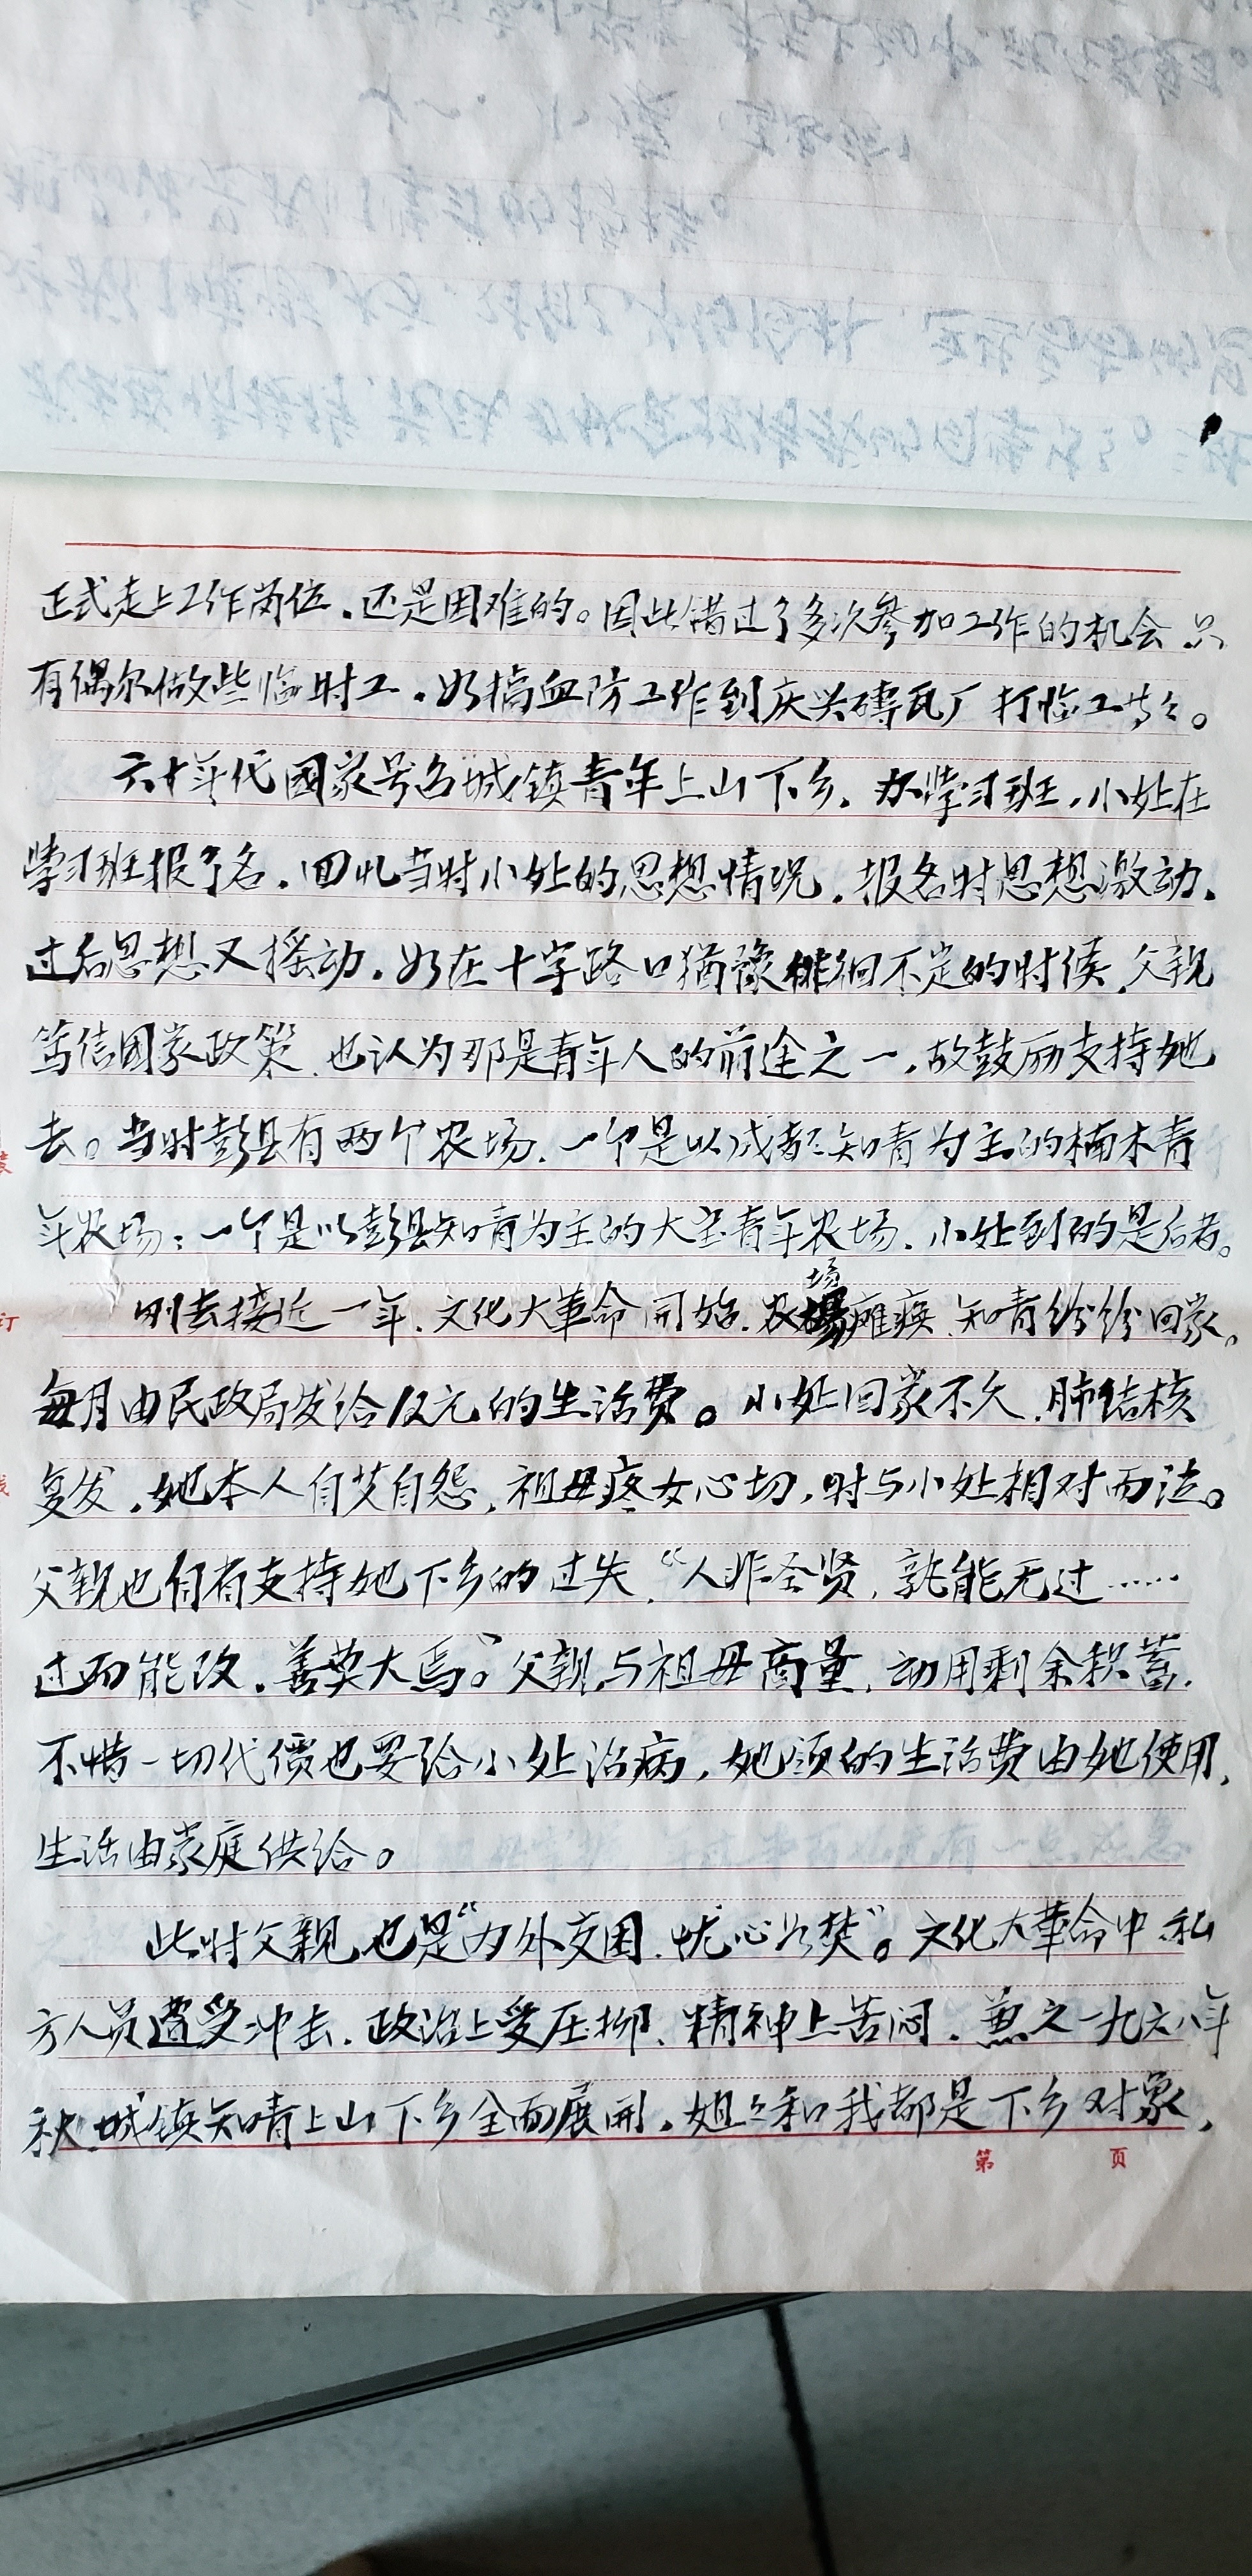 正式走上工作岗位，还是困难的。因此错过了多次参加工作的机会只
有偶尔做些临时工，如搞血防工作到庆兴砖瓦厂打临工等等。
六十年代国家号召城镇青年上山下乡，办学习班，小处在
学习班报了名，回忆当时小处的思想情况，报名时思想激动，
过后思想又摇动，如在十字路口犹豫徘徊不定的时候，父亲
笃信国家政策，也认为那是青年人的前途之一，故鼓励支持她
去。当时彭县有两个农场，一个是以成都知青为主的楠木青
年农场；一个是以彭县知青为主的大宝青年农场，小处到的是后者。
刚去接近一年，文化大革命开始，农场瘫痪，知青纷纷回家。
每月由民政局发给12元的生活费。小处回家不久，肺结核
复发，她本人自艾自怨，祖母疼女心切，时与小处相对而泣。
父亲也自有支持她下乡的过失，“人非圣贤，孰能无过……
过而能改，善莫大焉。”父亲与祖母商量，动用剩余积蓄，
不惜一切代价也要给小处治病，她领的生活费由她使用，
生活由家庭供给。
此时父亲也是“内外交困，忧心如焚”。文化大革命中私
方人员遭受冲击，政治上受压抑，精神上苦闷，兼之一九六八年
秋，城镇知青上山下乡全面展开，姐姐和我都是下乡对象，
第 页